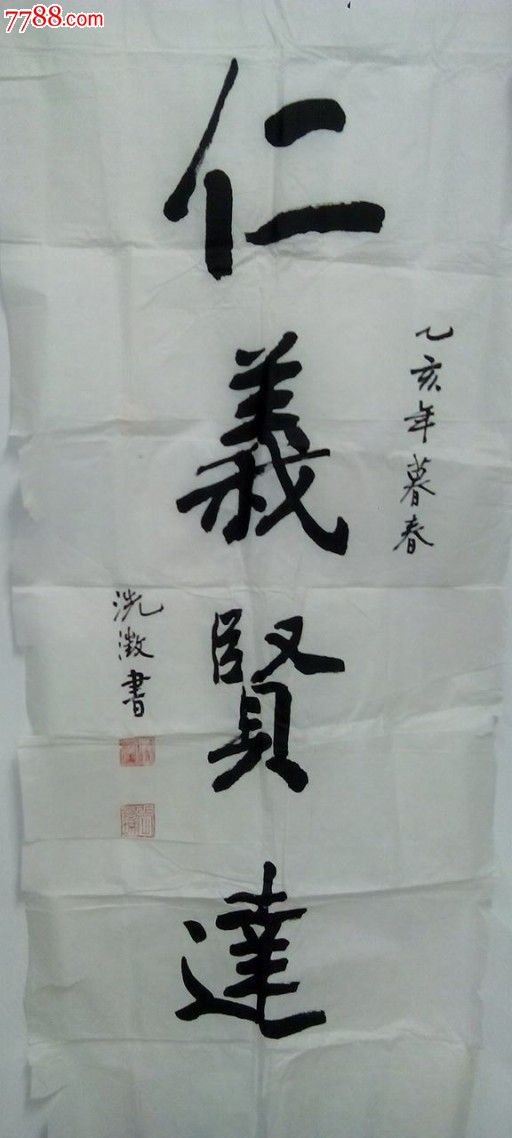 7788.com
乙亥年暮春
仁義賢達
洗澂書